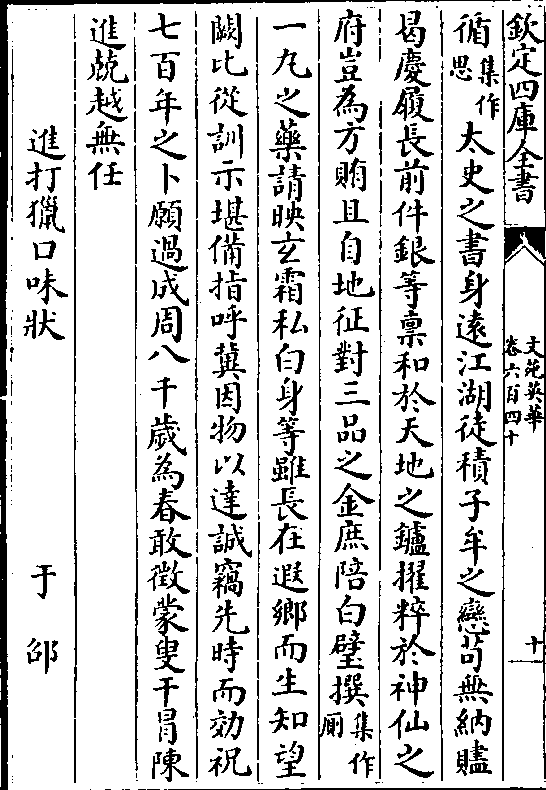 欽定四庫全書
文苑英華
卷六百四十
十一
循集作思太史之書身遠江湖徒積子牟之戀苟無納贐
曷慶履長前件銀等稟和於天地之鑪擢粹於神仙之
府豈為方賄且自地征對三品之金庶陪白璧撰集作厠
一丸之藥請映玄霜私白身等雖長在遐鄉而生知望
闕比從訓示堪備指呼冀因物以達誠竊先時而効祝
七百年之卜願過成周八千歲為春敢徵蒙叟干冒陳
進兢越無任
進打獵口味狀 于邵